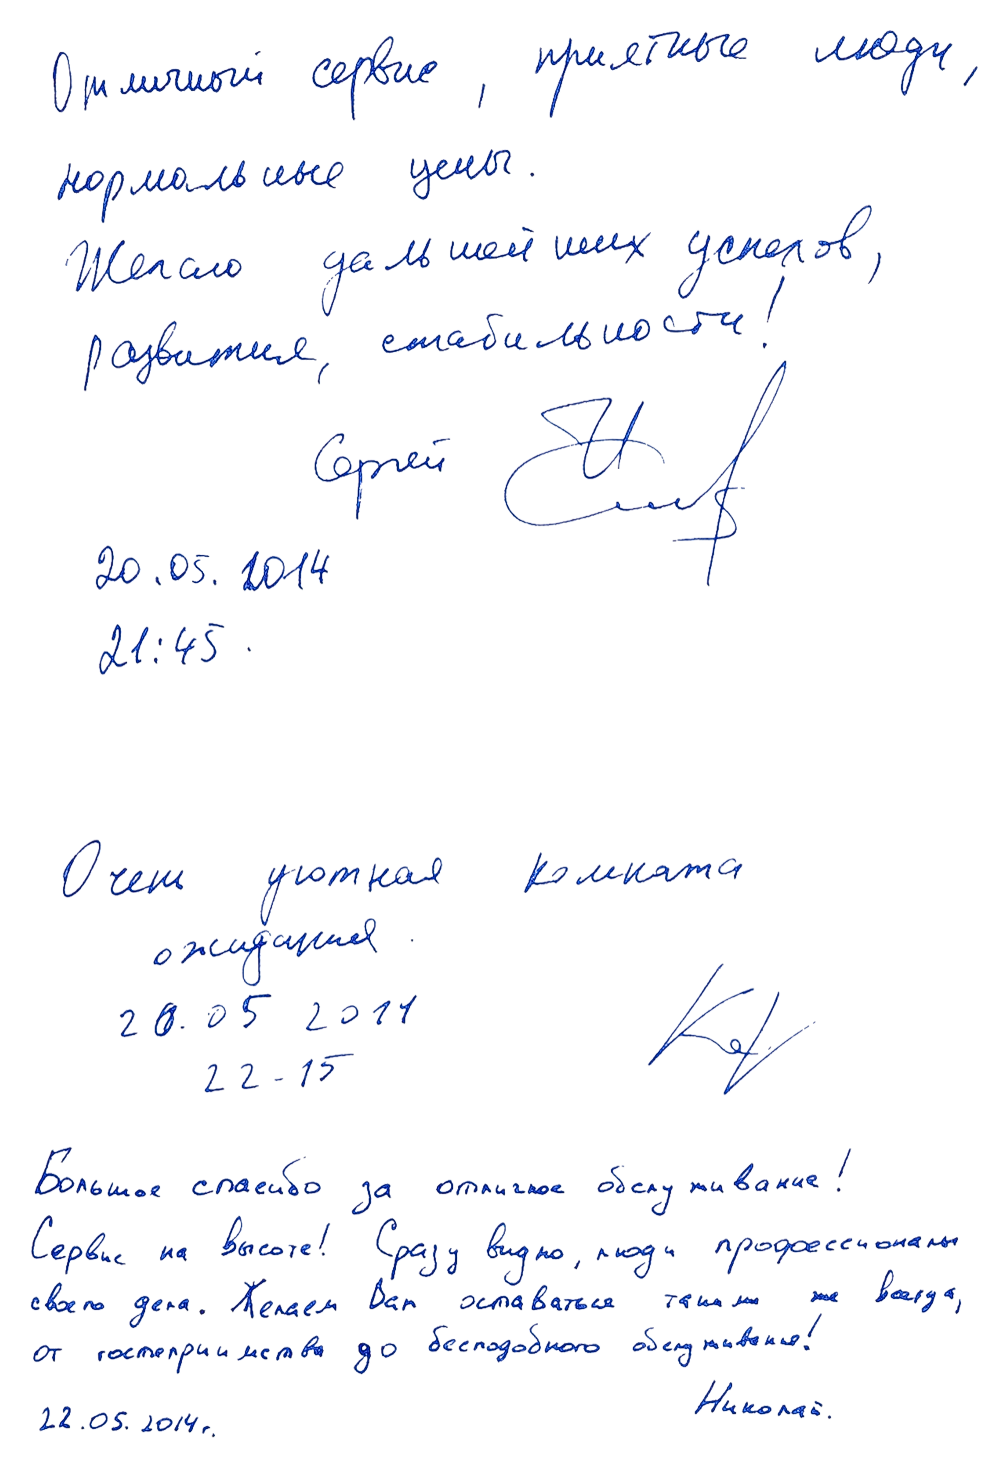 Отличный сервис, приятные люди,
нормальные цены.
Желаю дальнейших успехов,
развития, стабильности!
Сергей
20.05.2014
21:45.
Очень уютная комната
ожидания.
20.05 2014
22-15
Большое спасибо за отличное обслуживание!
Сервис на высоте! Сразу видно, люди профессионалы
своего дела. Желаем Вам оставаться такими же всегда,
от гостеприимства до бесподобного обслуживания!
Николай.
22.05.2014г.